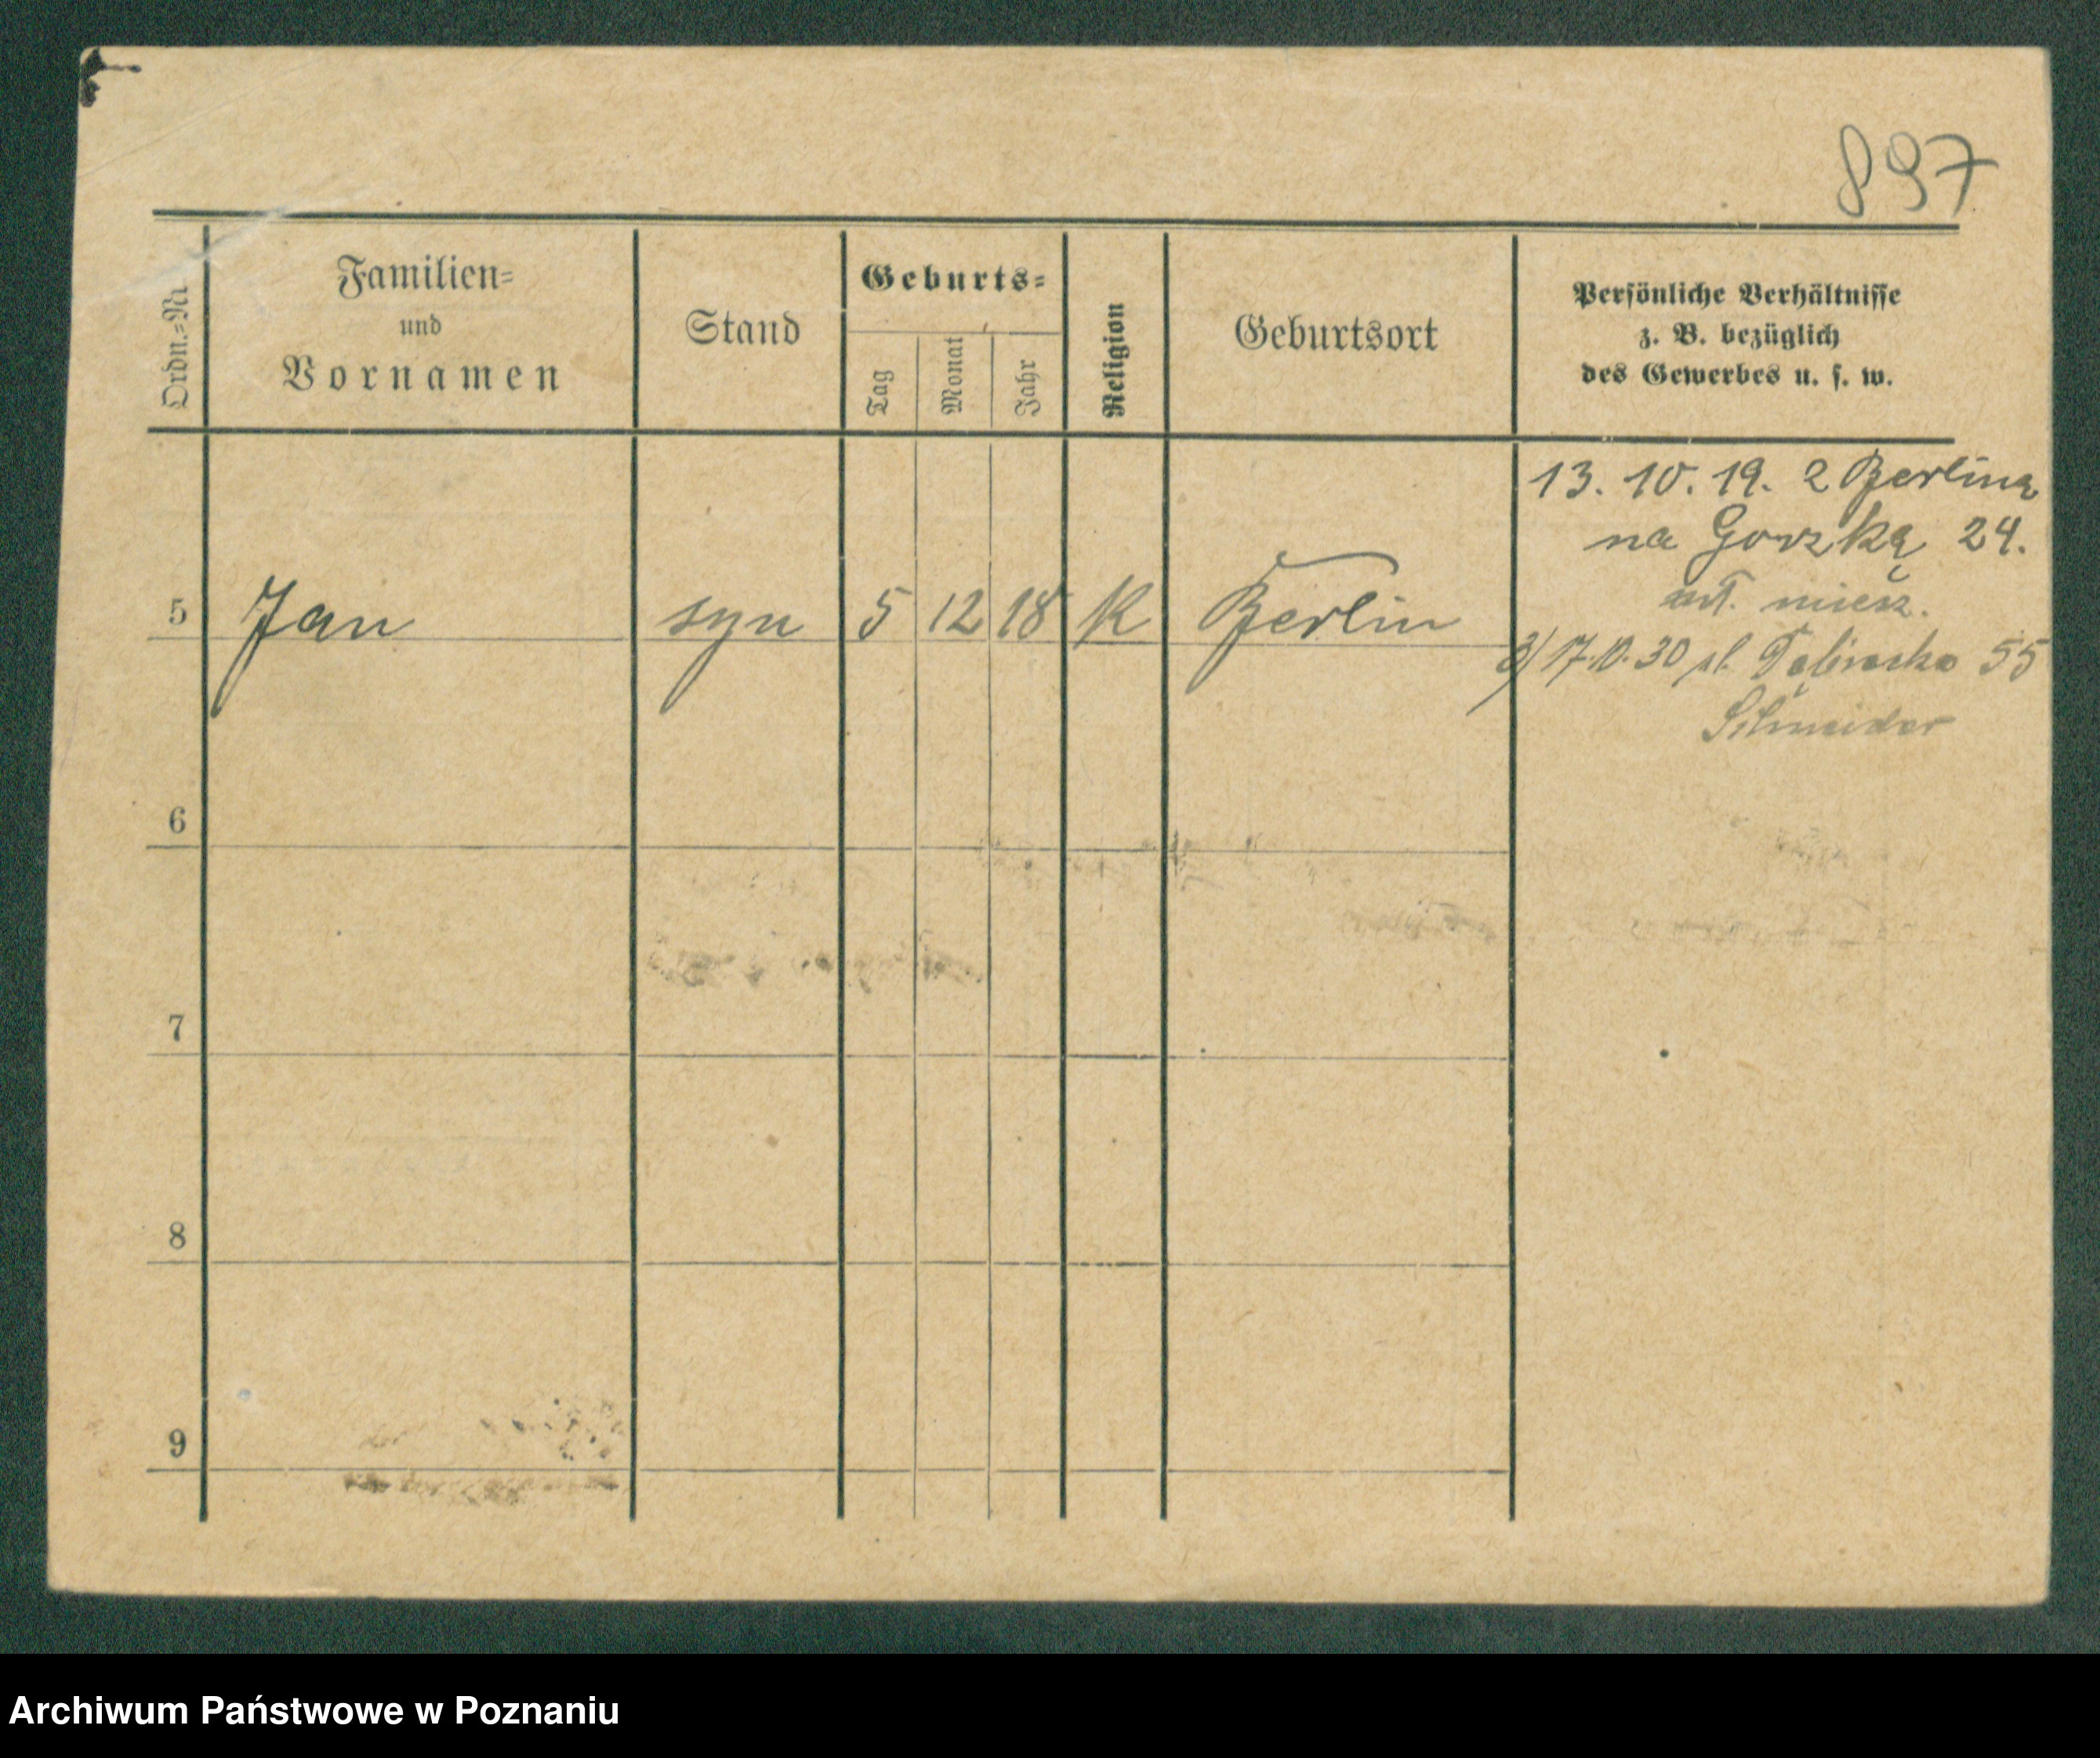 897
Ordn.-Nr.
Familien-
und
Vornamen
Stand
Geburts-
Tag
Monat
Jahr
Religion
Geburtsort
Persönliche Verhältnisse
z. B. bezüglich
des Gewerbes u. s. w.
13. 10. 19. z Berlina
na Gorzką 24.
miesz.
5 Jan syn 5 12 18 K Berlin
3) 17.10.30 55
Schneider
6
7
8
9
Archiwum Państwowe w Poznaniu